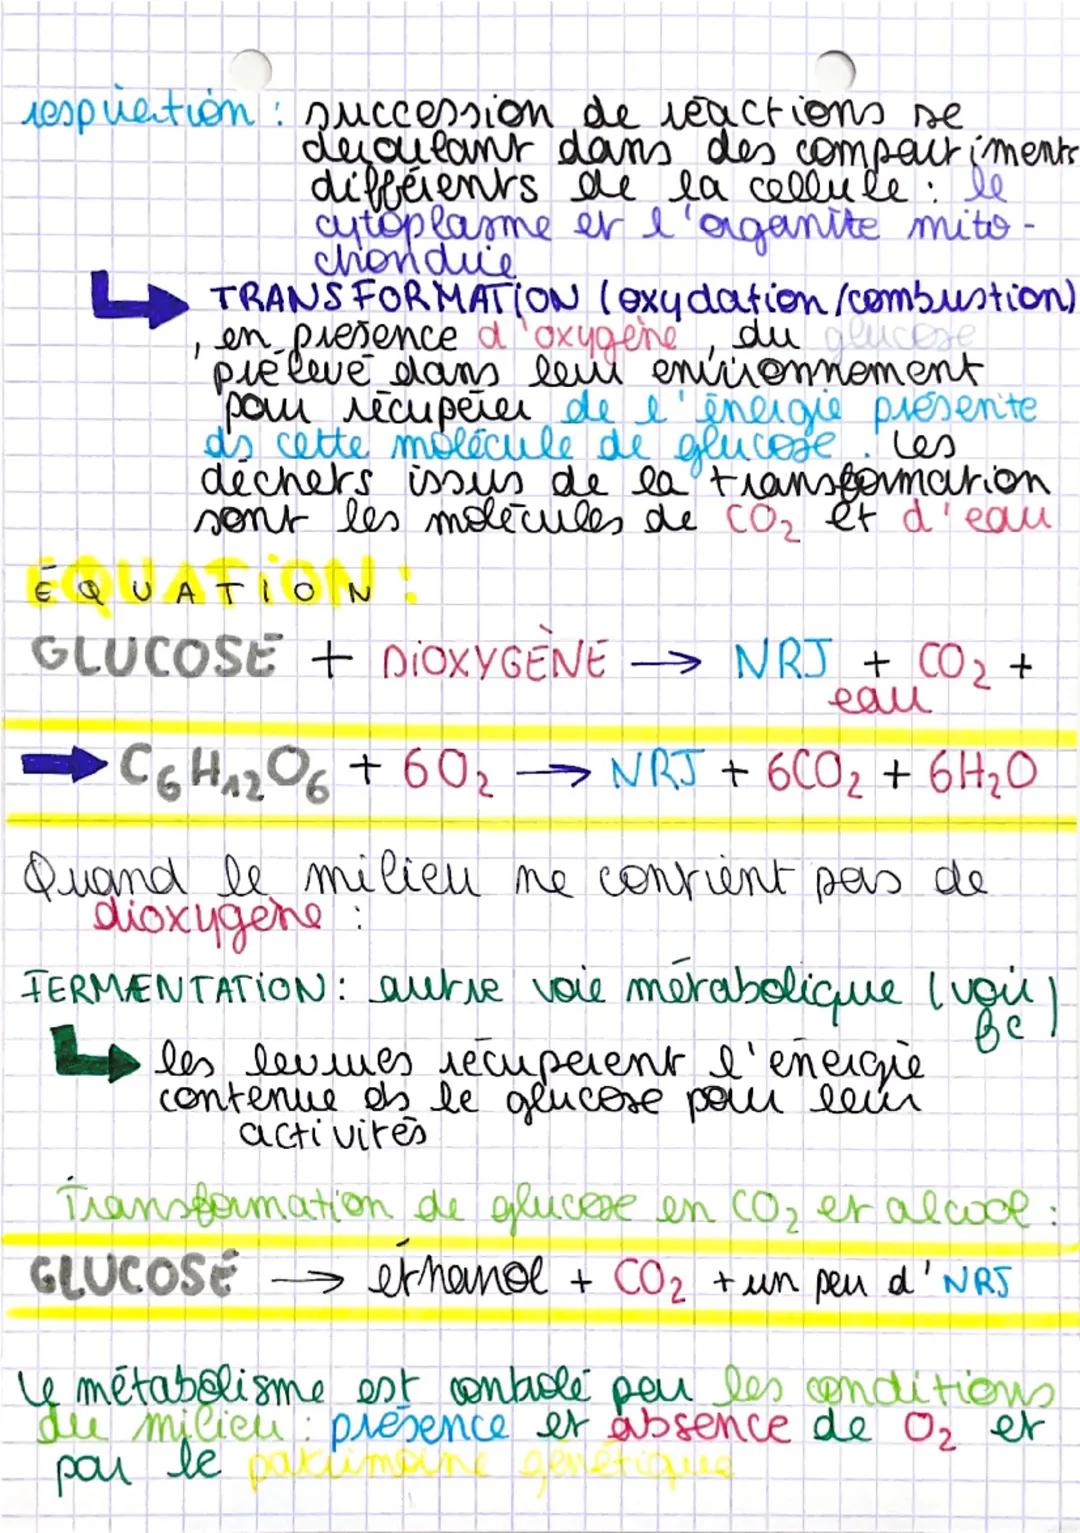 respiration : succession de réactions se
déroulant dans des compartiments
différents de la cellule : le
cytoplasme et l'organite mito-
chondrie
TRANSFORMATION (oxydation/combustion)
, en présence d'oxygène, du glucose
prélevé dans leur environnement
pour récupérer de l'énergie présente
ds cette molécule de glucose. Les
déchets issus de la transformation
sont les molécules de CO₂ et d'eau
ÉQUATION :
GLUCOSE + DiOXYGÈNE → NRJ + CO₂ +
eau
→ C₆H₁₂O₆ + 6O₂ → NRJ + 6CO₂ + 6H₂O
Quand le milieu ne contient pas de
dioxygène :
FERMENTATION : autre voie métabolique (voir
BC)
les levures récupèrent l'énergie
contenue ds le glucose pour leur
activités
Transformation de glucose en CO₂ et alcool :
GLUCOSE → éthanol + CO₂ + un peu d'NRJ
le métabolisme est contrôlé par les conditions
du milieu : présence et absence de O₂ et
par le patrimoine génétique